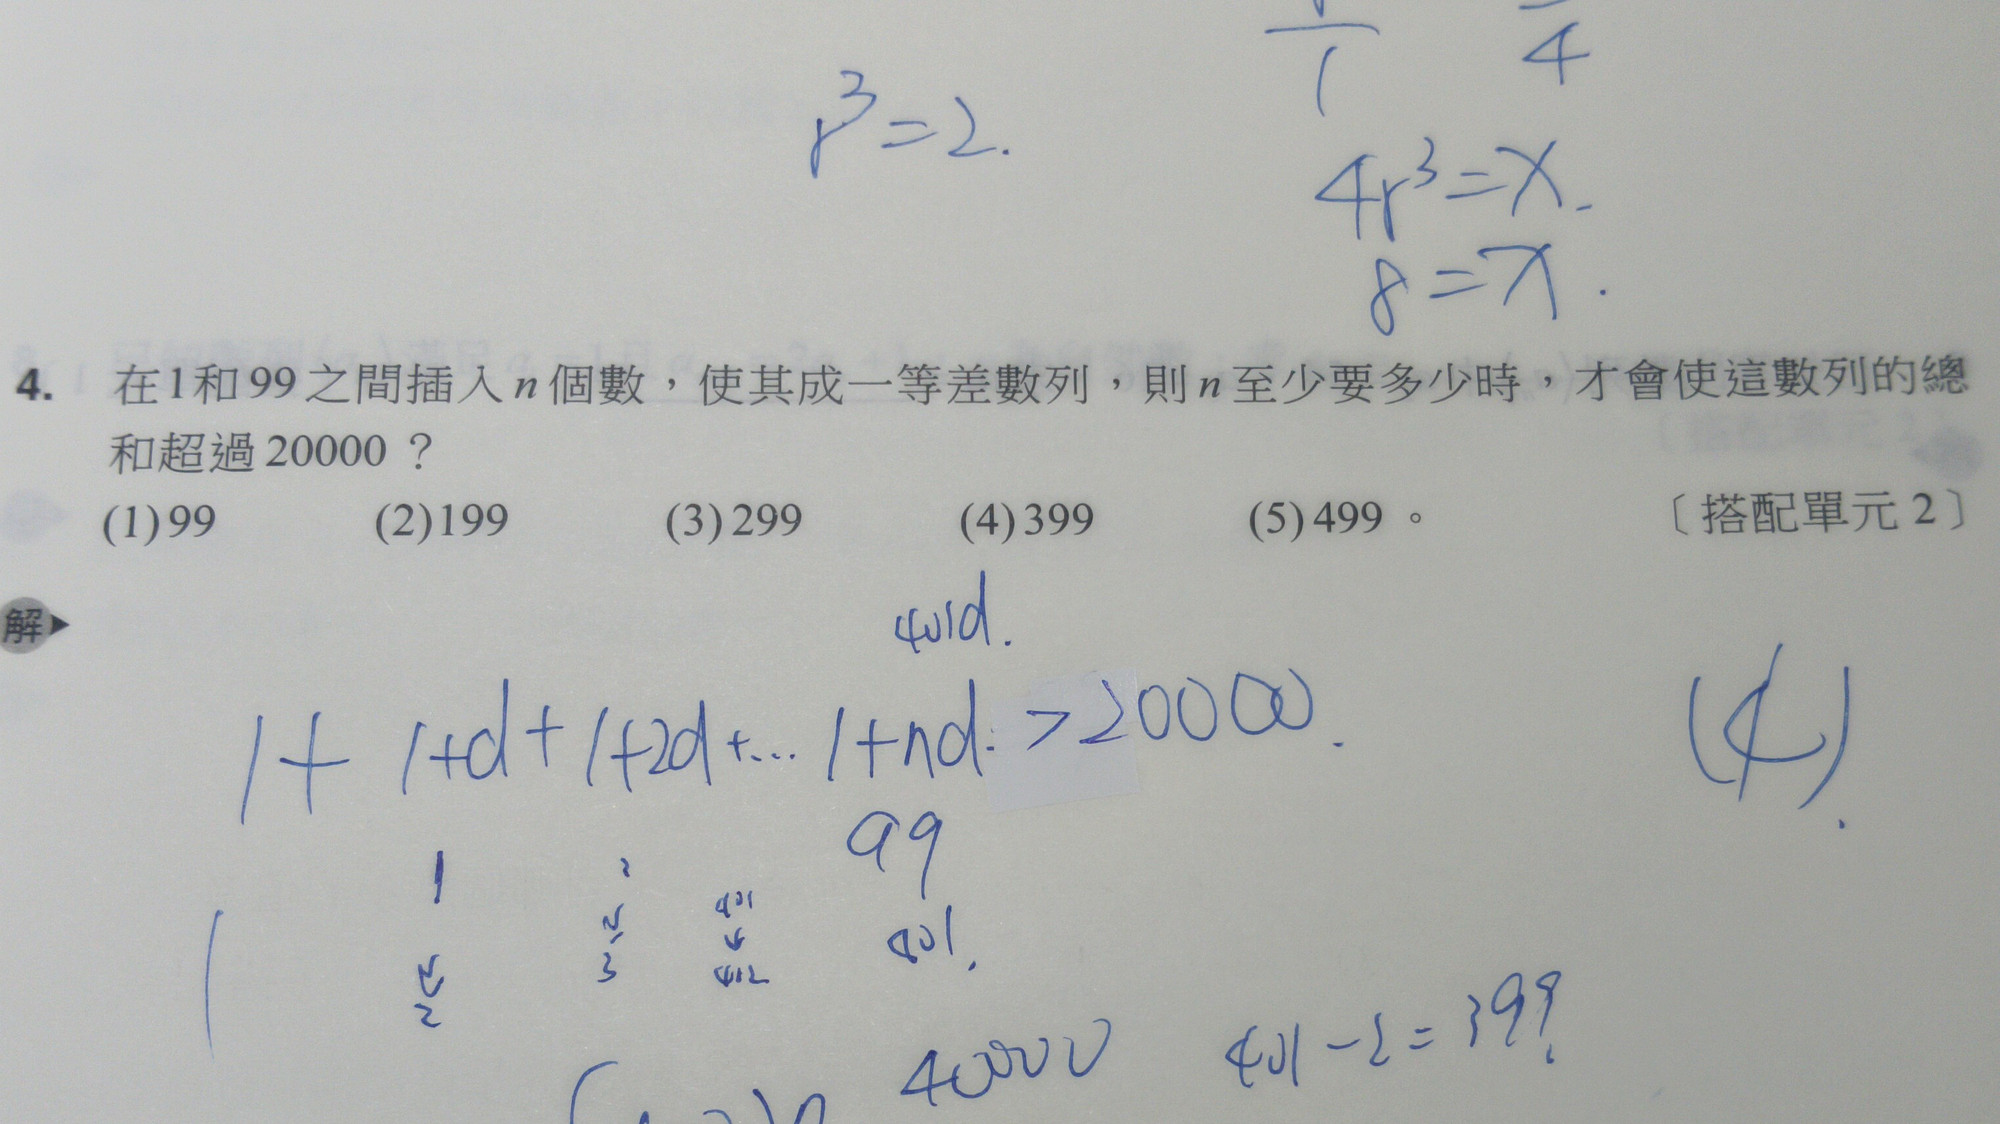 r³=2.
1
4
4r³=x.
8=x.
4. 在1和99之間插入n個數，使其成一等差數列，則n至少要多少時，才會使這數列的總
和超過20000？
(1)99 (2)199 (3)299 (4)399 (5)499。 〔搭配單元2〕
解
401d.
1+ 1+d+1+2d+... 1+nd. >20000.
(4).
99
1 2 401
↓ ↓ ↓ 401.
2 3 402
40000 401-2=399.